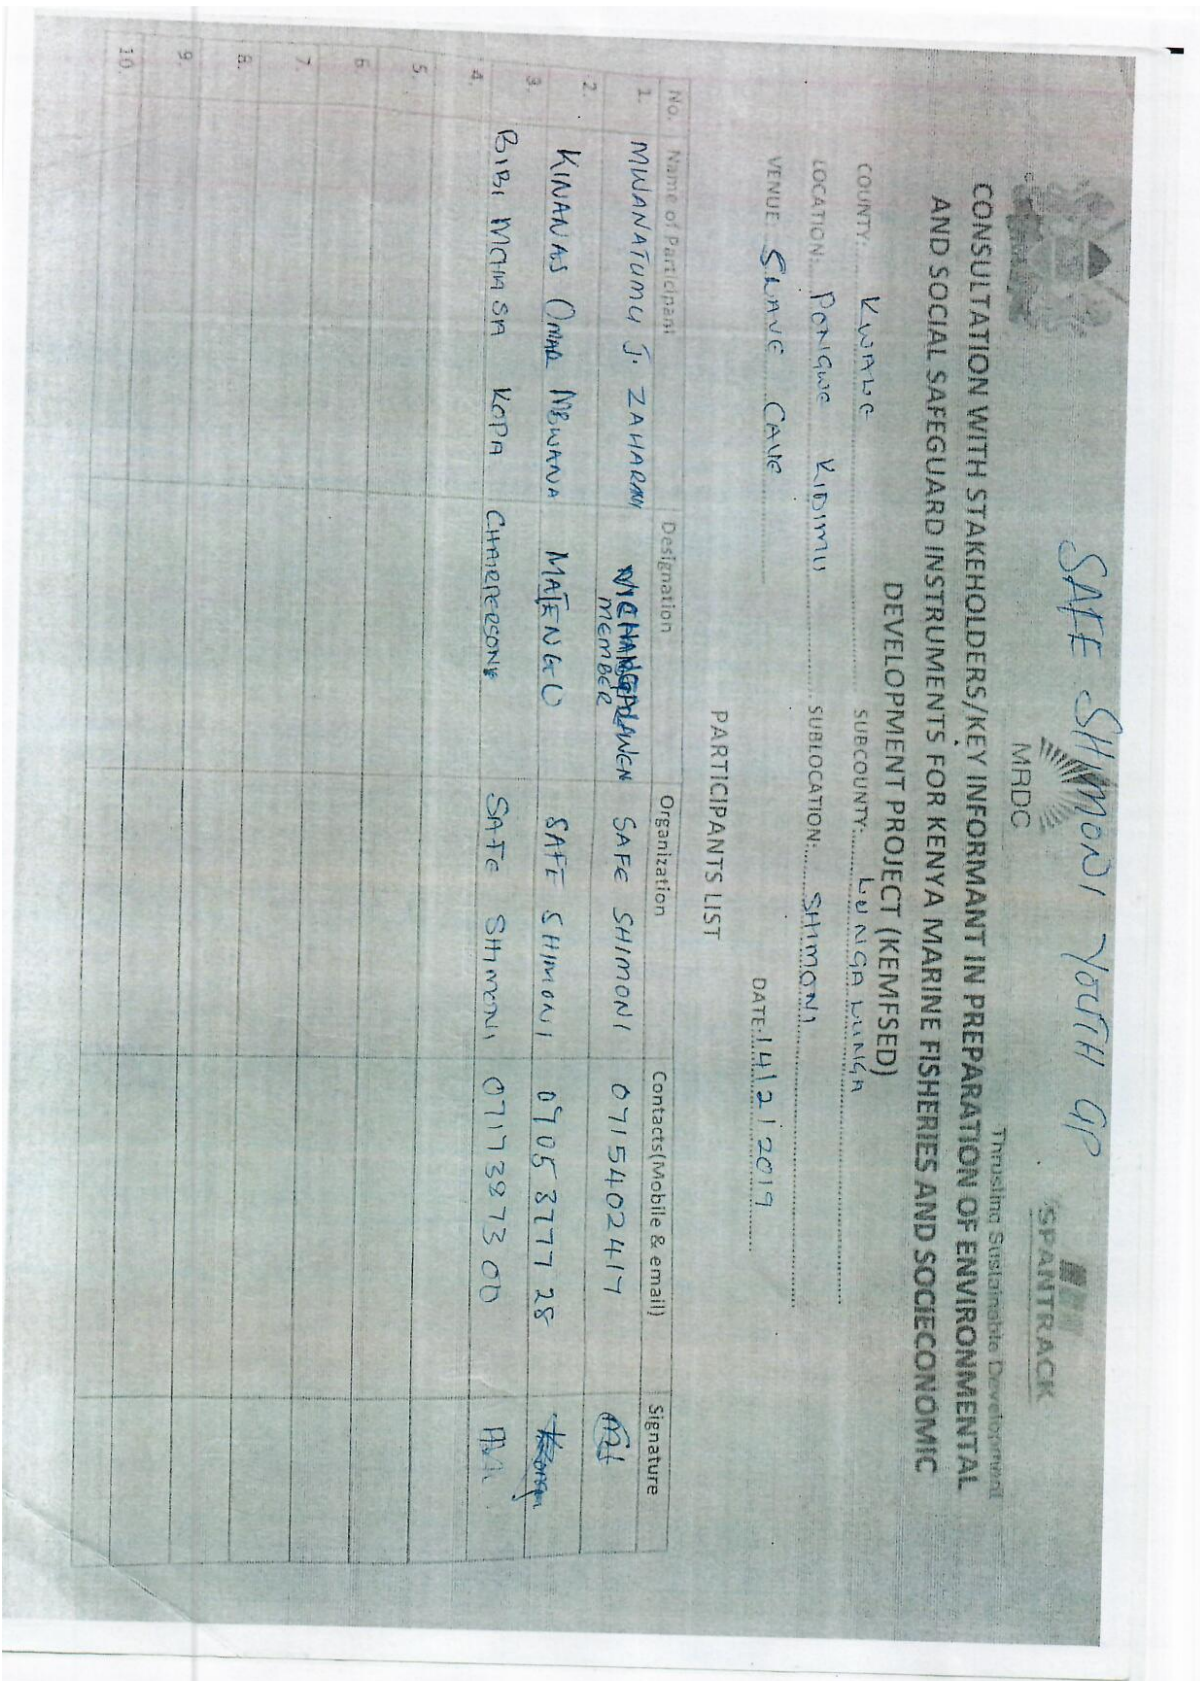 SAFE SHIMONI YOUTH GP
MRDC
SPANTRACK
Thrusting Sustainable Development
CONSULTATION WITH STAKEHOLDERS/KEY INFORMANT IN PREPARATION OF ENVIRONMENTAL
AND SOCIAL SAFEGUARD INSTRUMENTS FOR KENYA MARINE FISHERIES AND SOCIECONOMIC
DEVELOPMENT PROJECT (KEMFSED)
COUNTY: KWALE SUBCOUNTY: LUNGA LUNGA
LOCATION: PONGWE KIDIMU SUBLOCATION: SHIMONI
VENUE SLAVE CAVE DATE: 14/2/2019
PARTICIPANTS LIST
No. Name of Participant Designation Organization Contacts(Mobile & email) Signature
1. MWANATUMU J. ZAHARANI MEMBER SAFE SHIMONI 0715402417
2. KINANAS OMAR MBWANA MATENGO SAFE SHIMONI 0705377728
3. BIBI KOPA CHAIRPERSON SAFE SHIMONI 0717387300
4.
5.
6.
7.
8.
9.
10.